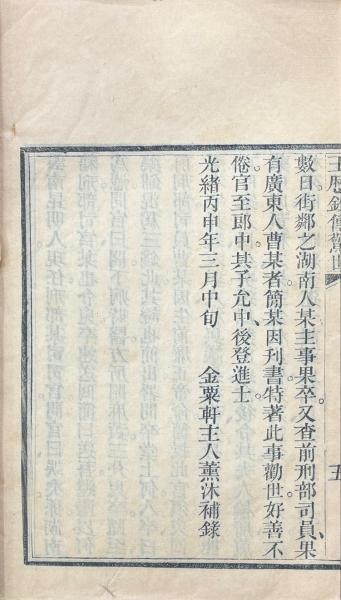 玉歷鈔傳警世
五
數日街鄰之湖南人某主事果卒。又查前刑部司員、果
有廣東人曹某者、簡某因刊書特著此事勸世好善不
倦官至郎中其子允中、後登進士。
光緒丙申年三月中旬　金粟軒主人薰沐補錄